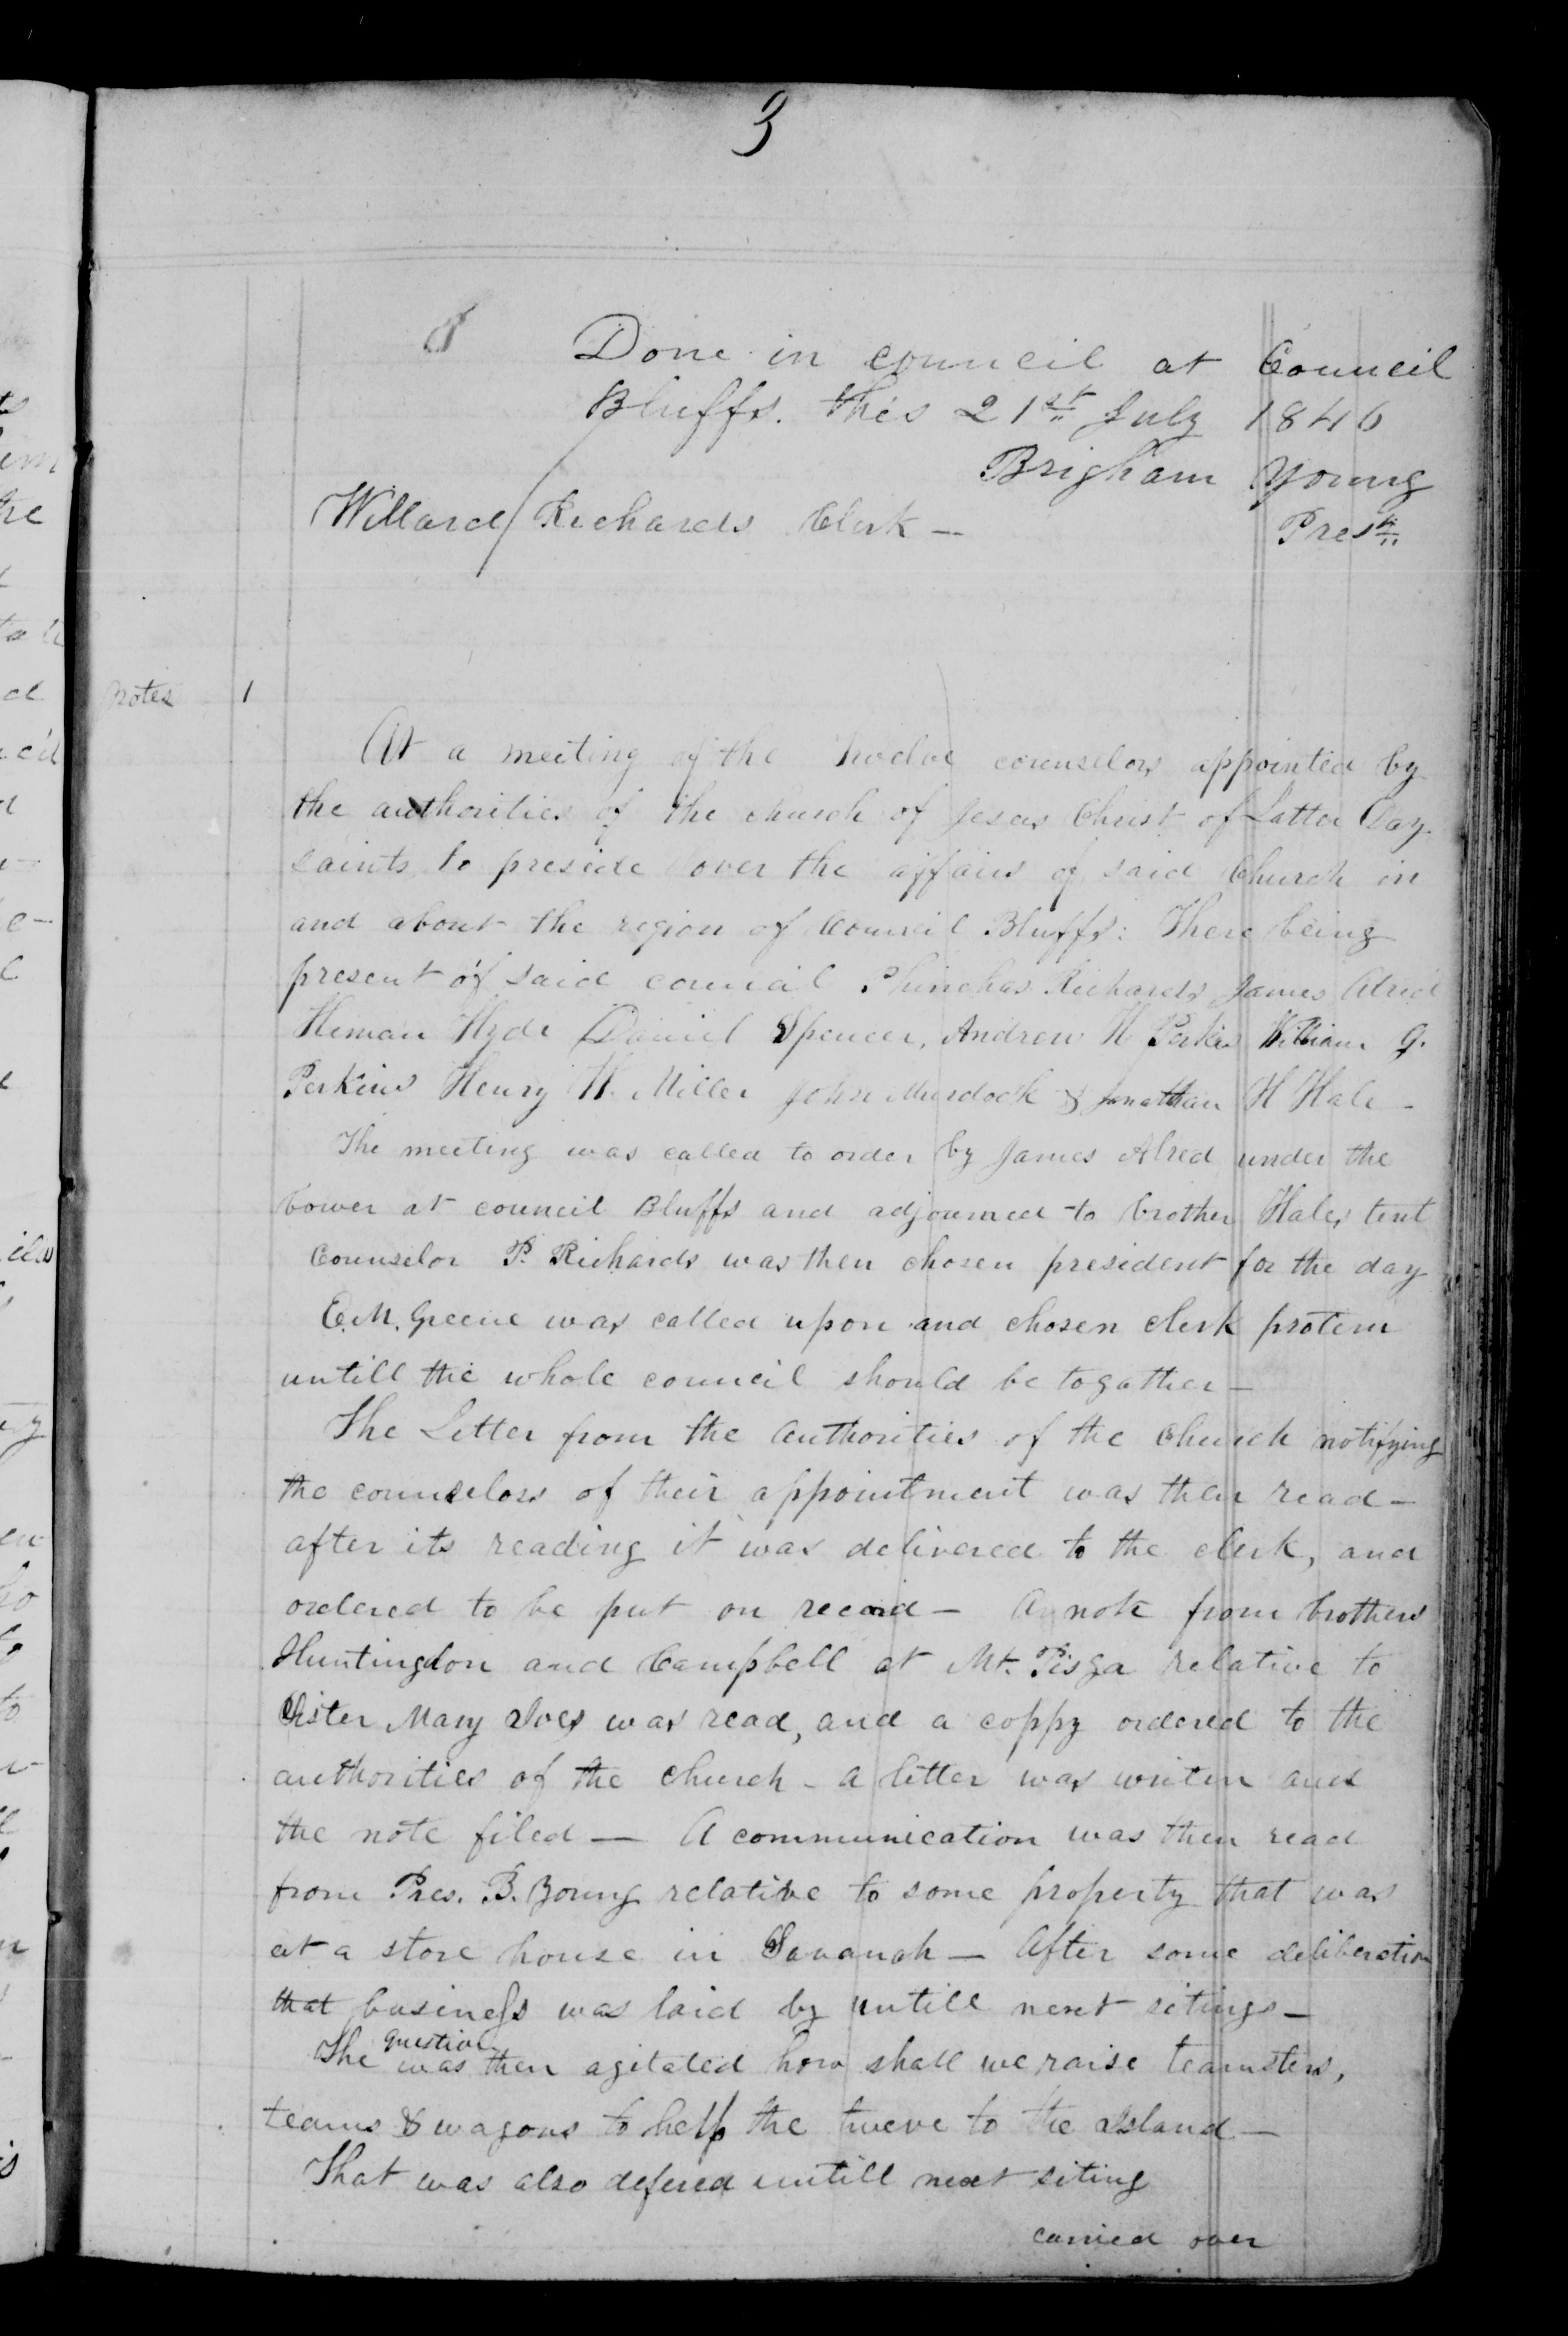 3
Done in council at Council
Bluffs. this 21st July 1846
Brigham Young
Willard Richards Clerk — Presdt
Notes 1
At a meeting of the Twelve counselors appointed by
the authorities of the church of Jesus Christ of Latter Day
saints to preside over the affairs of said Church in
and about the region of Council Bluffs: There being
present of said council Phinehas Richards James Alred
Heman Hyde Daniel Spencer, Andrew H Perkins William G.
Perkins Henry W. Miller John Murdock & Jonathan H Hale —
The meeting was called to order by James Alred under the
bower at council Bluffs and adjourned to brother Hales tent
Counselor P. Richards was then chosen president for the day
E.M. Greene was called upon and chosen clerk protem
untill the whole council should be togather —
The Letter from the authorities of the church notifying
the counselors of their appointment was then read —
after its reading it was delivered to the clerk, and
ordered to be put on record — A note from brothers
Huntingdon and Campbell at Mt. Pisga relative to
Sister Mary Ives was read, and a coppy ordered to the
authorities of the church — a letter was writen and
the note filed — A communication was then read
from Pres. B. Young relative to some property that was
at a store house in Savanah — After some deliberation
that business was laid by untill next sitings —
The question was then agitated how shall we raise teamsters,
teams & wagons to help the tweve to the Island —
That was also defered untill next siting
carried over